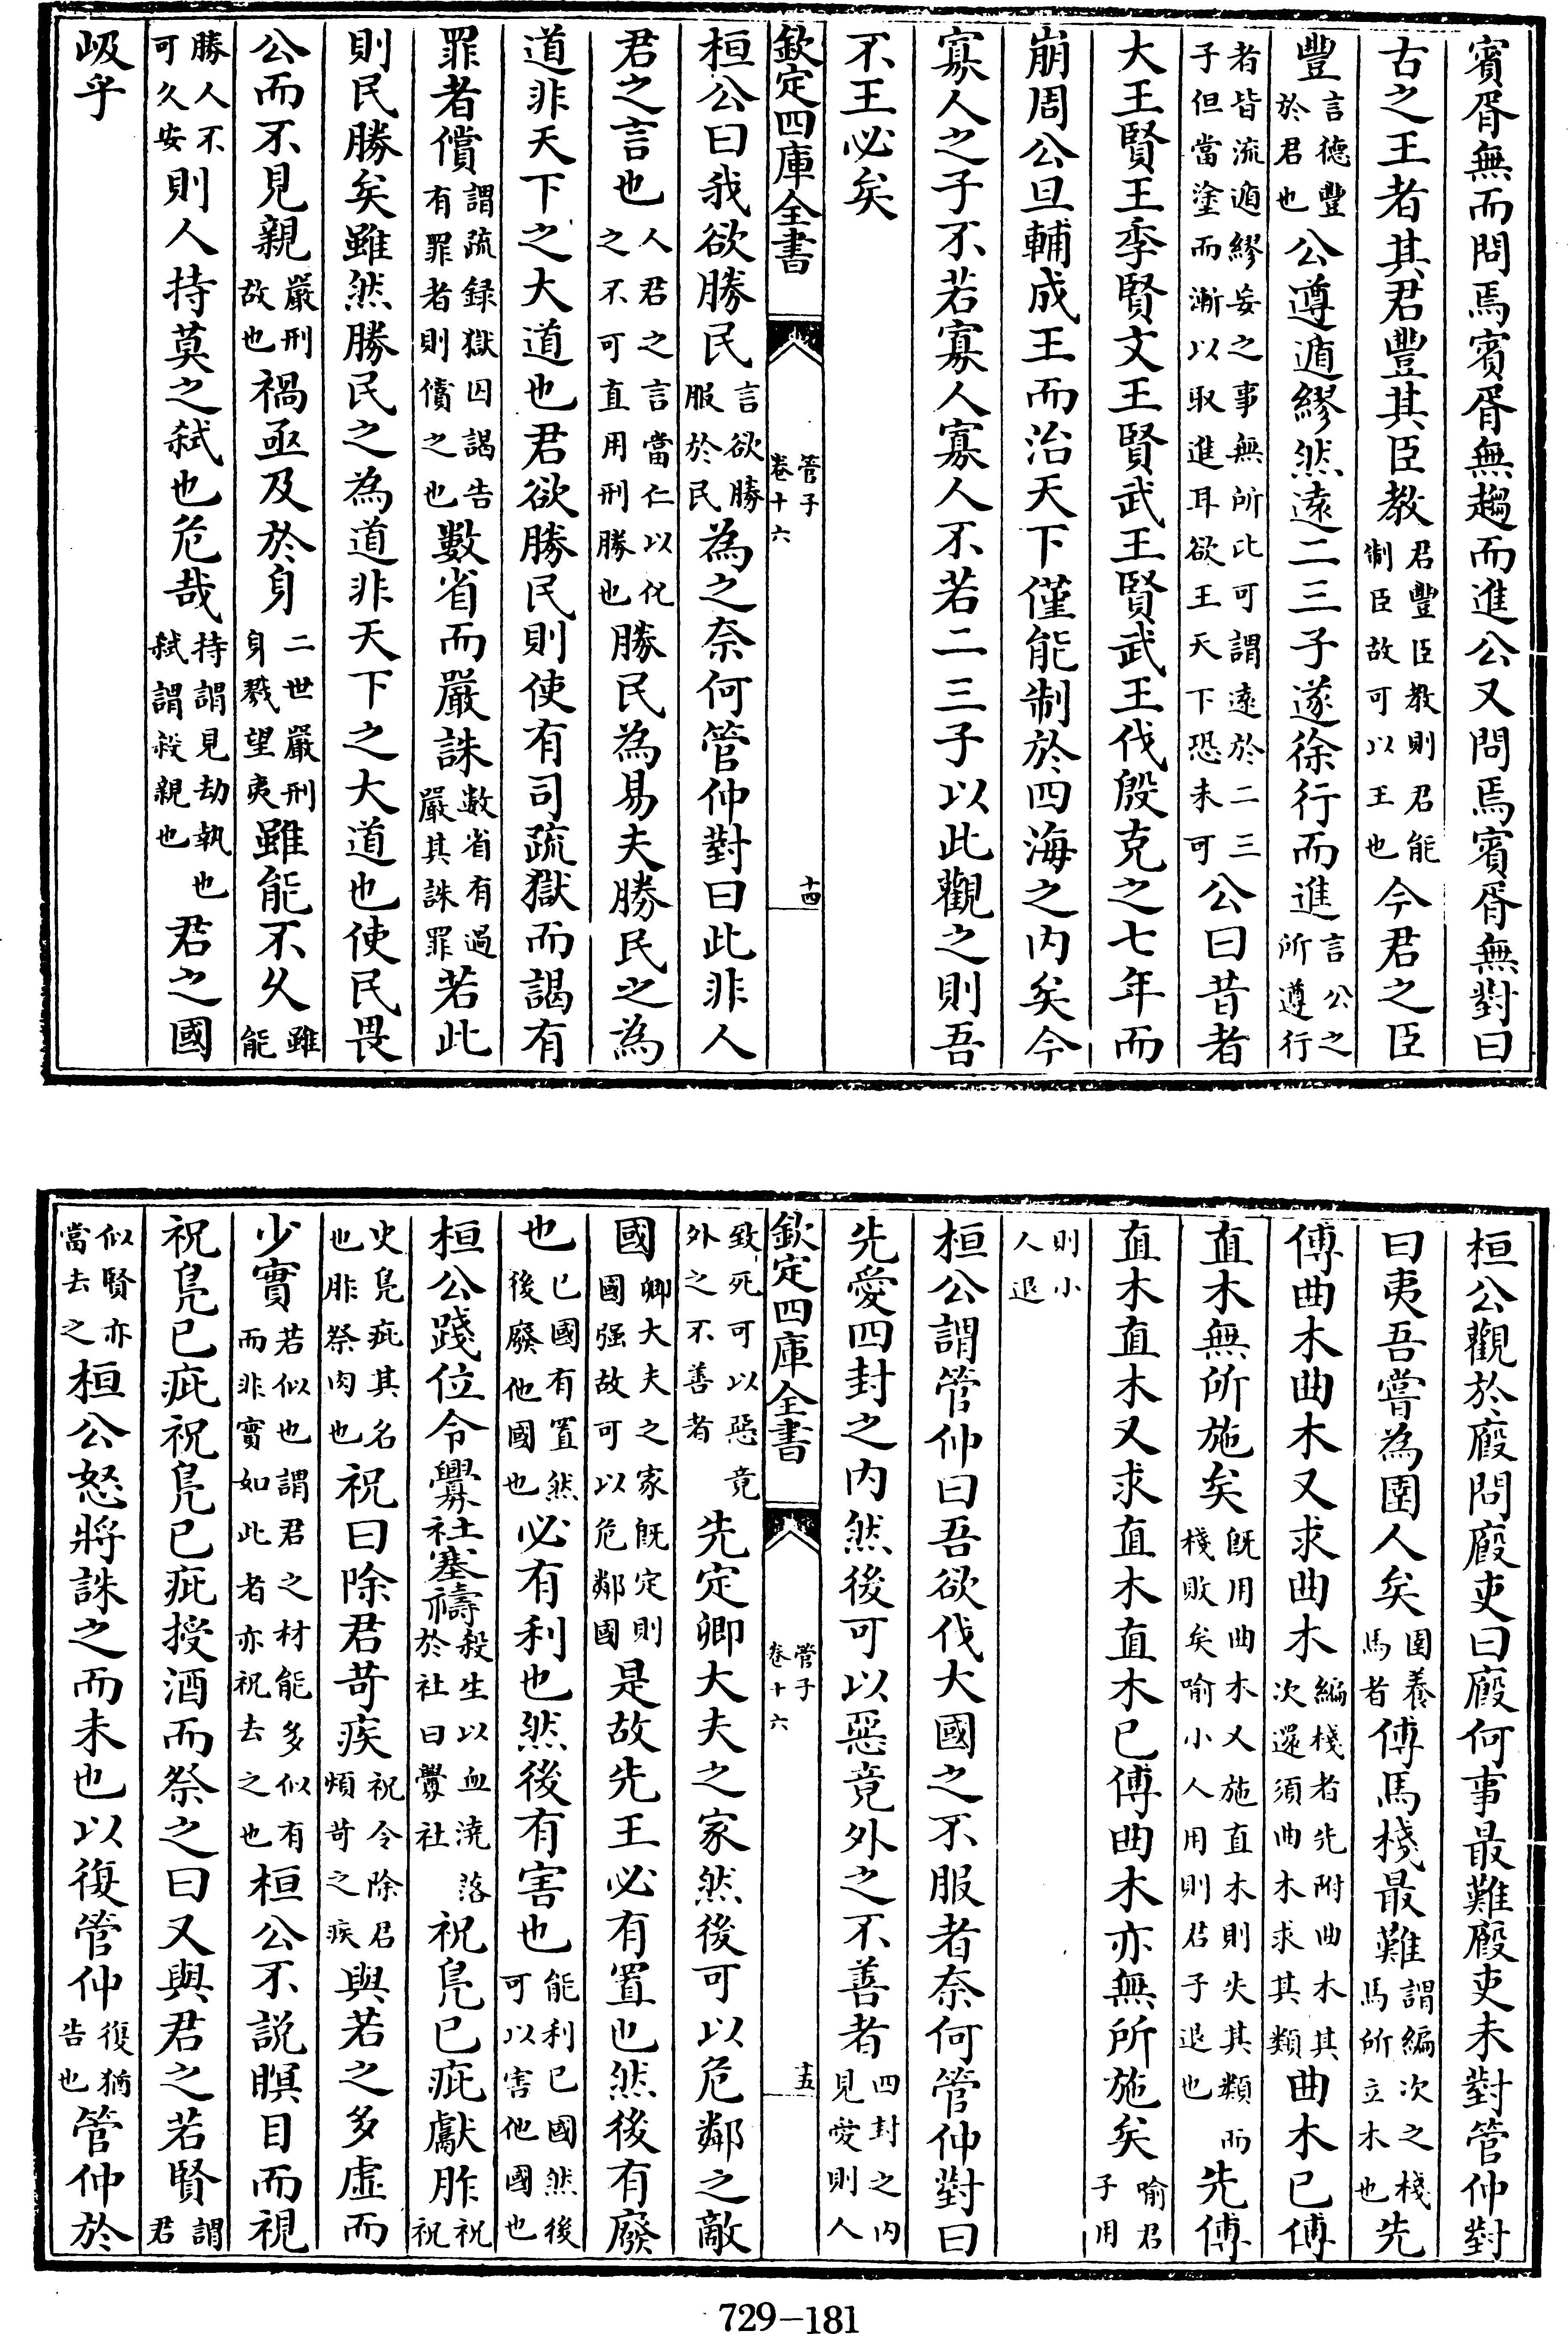 賓胥無而問焉賓胥無趨而進公又問焉賓胥無對曰
古之王者其君豐其臣教君豐臣教則君能制臣故可以王也今君之臣
豐言德豐於君也公遵遁繆然遠二三子遂徐行而進言公之所遵行
者皆流遁繆妄之事無所比可謂遠於二三子但當塗而漸以取進耳欲王天下恐未可公曰昔者
大王賢王季賢文王賢武王賢武王伐殷克之七年而
崩周公旦輔成王而治天下僅能制於四海之內矣今
寡人之子不若寡人寡人不若二三子以此觀之則吾
不王必矣
欽定四庫全書 管子卷十六 十四
桓公曰我欲勝民言欲勝服於民為之奈何管仲對曰此非人
君之言也人君之言當仁以化之不可直用刑勝也勝民為易夫勝民之為
道非天下之大道也君欲勝民則使有司疏獄而謁有
罪者償謂疏録獄囚謁告有罪者則償之也數省而嚴誅數省有過嚴其誅罪若此
則民勝矣雖然勝民之為道非天下之大道也使民畏
公而不見親嚴刑故也禍亟及於身二世嚴刑身戮望夷雖能不久雖能
勝人不可久安則人持莫之弒也危哉持謂見劫執也弒謂殺親也君之國
岋乎
桓公觀於廄問廄吏曰廄何事最難廄吏未對管仲對
曰夷吾嘗為圉人矣圉養馬者傅馬棧最難謂編次之棧馬所立木也先
傅曲木曲木又求曲木編棧者先附曲木其次還須曲木求其類曲木已傅
直木無所施矣既用曲木又施直木則失其類而棧敗矣喻小人用則君子退也先傅
直木直木又求直木直木已傅曲木亦無所施矣喻君子用
則小人退
桓公謂管仲曰吾欲伐大國之不服者奈何管仲對曰
先愛四封之內然後可以惡竟外之不善者四封之內見愛則人
致死可以惡竟外之不善者先定卿大夫之家然後可以危鄰之敵
國卿大夫之家既定則國强故可以危鄰國是故先王必有置也然後有廢
也已國有置然後廢他國也必有利也然後有害也能利已國然後可以害他國也
桓公踐位令釁社塞禱殺生以血澆落於社曰釁社祝鳧已疵獻胙祝
史鳧疵其名也胙祭肉也祝曰除君苛疾祝令除君煩苛之疾與若之多虛而
少實若似也謂君之材能多似有而非實如此者亦祝去之也桓公不説瞑目而視
祝鳧已疵祝鳧已疵授酒而祭之曰又與君之若賢謂君
似賢亦當去之桓公怒將誅之而未也以復管仲復猶告也管仲於
欽定四庫全書 管子卷十六 十五
729-181